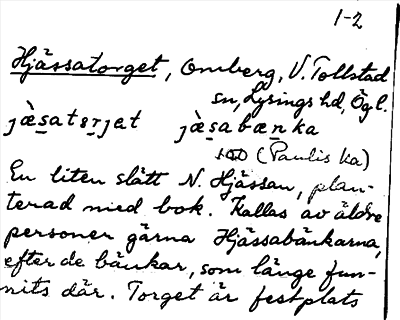 1-2
Hjässatorget, Omberg, V. Tollstad
sn, Lysings hd, Ögl.
jæ̀satərjet jæ̀sabænka
(Paulis ka)
En liten slätt N. Hjässan, plan-
terad med bok. Kallas av äldre
personer gärna Hjässabänkarna,
efter de bänkar, som länge fun-
nits där. Torget är festplats